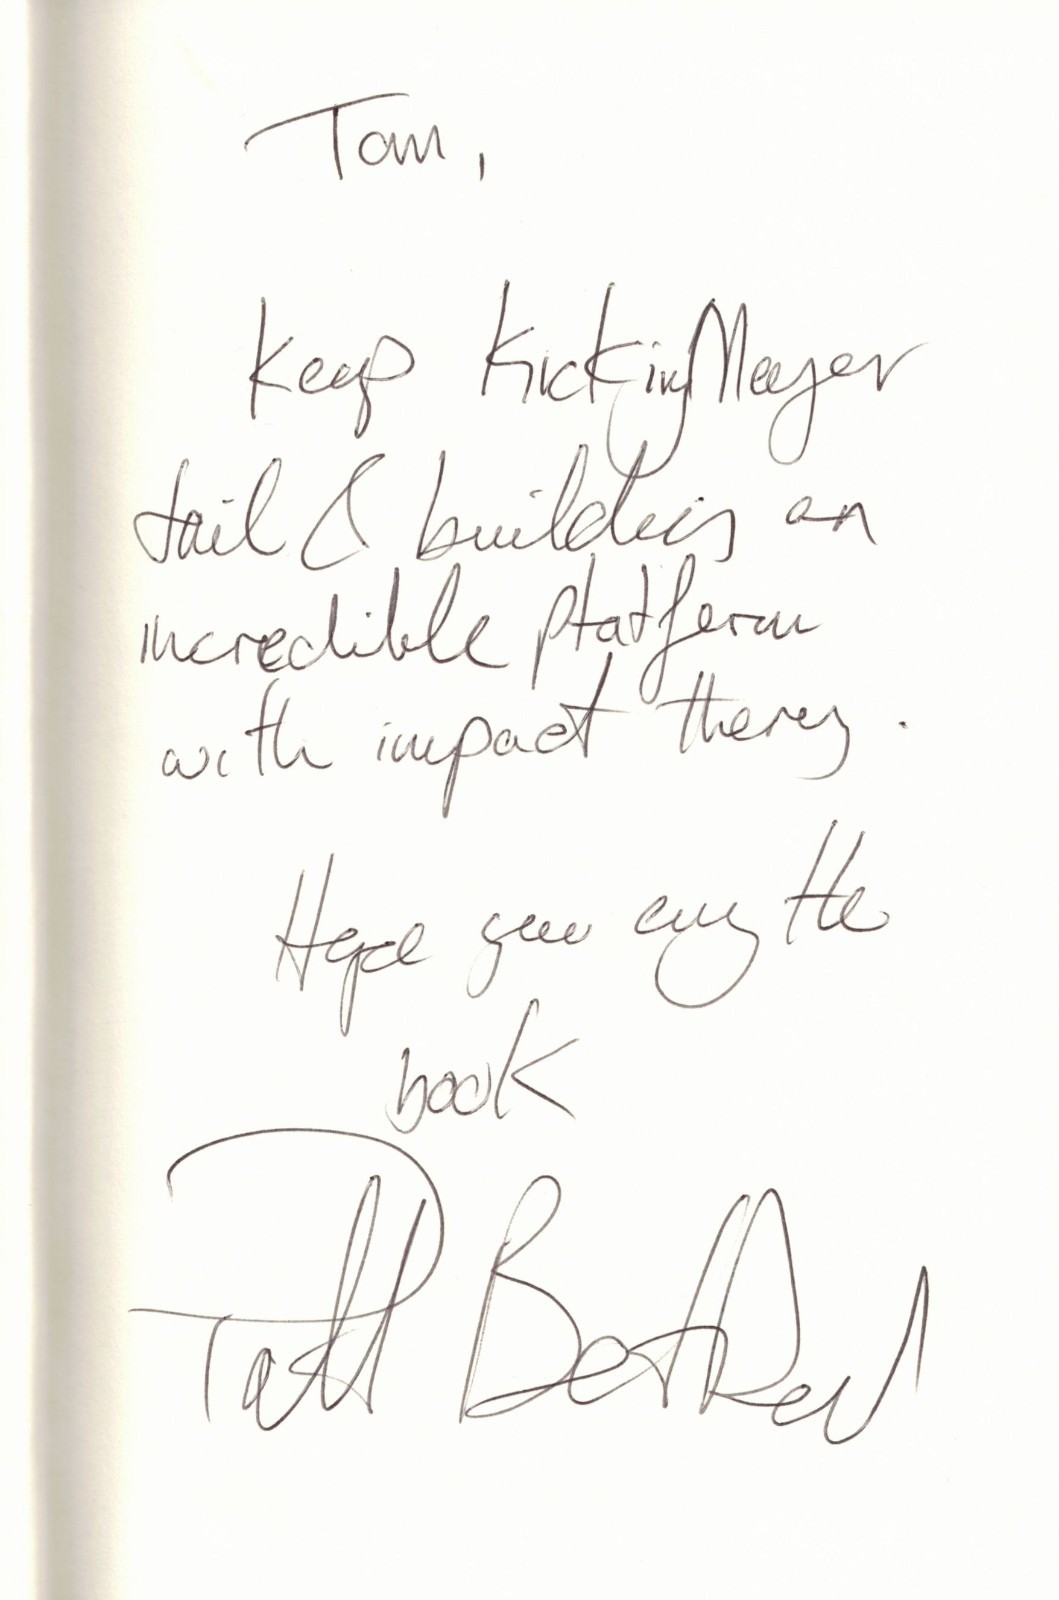 Tom,
Keep Kicking Meeyer
tail & building an
incredible platform
with impact theory.
Hope you enjoy the
book